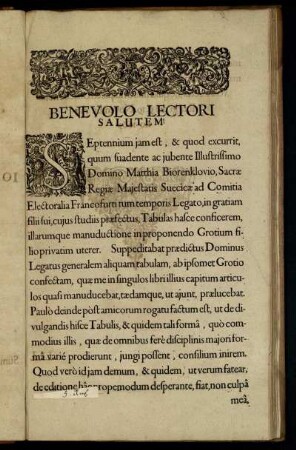 BENEVOLO LECTORI
SALUTEM
SEptennium jam est, & quod excurrit,
quum suadente ac jubente Illustrissimo
Domino Matthia Biorenklovio, Sacræ
Regiæ Majestatis Suecicæ ad Comitia
Electoralia Francofurti tum temporis Legato, in gratiam
filii sui, cujus studiis præfectus, Tabulas hasce conficerem,
illarumque manuductione in proponendo Grotium fi-
lio privatim uterer. Suppeditabat prædictus Dominus
Legatus generalem aliquam tabulam, ab ipsomet Grotio
confectam, quæ me in singulos libri illius capitum articu-
los quasi manuducebat, tædamque, ut ajunt, prælucebat.
Paulo deinde post amicorum rogatu factum est, ut de di-
vulgandis hisce Tabulis, & quidem tali formâ, quò com-
modius illis, quæ de omnibus ferè disciplinis majori for-
mâ variè prodierunt, jungi possent, consilium inirem.
Quod verò id jam demum, & quidem, ut verum fatear,
de editione hâc propemodum desperante, fiat, non culpâ
meâ,